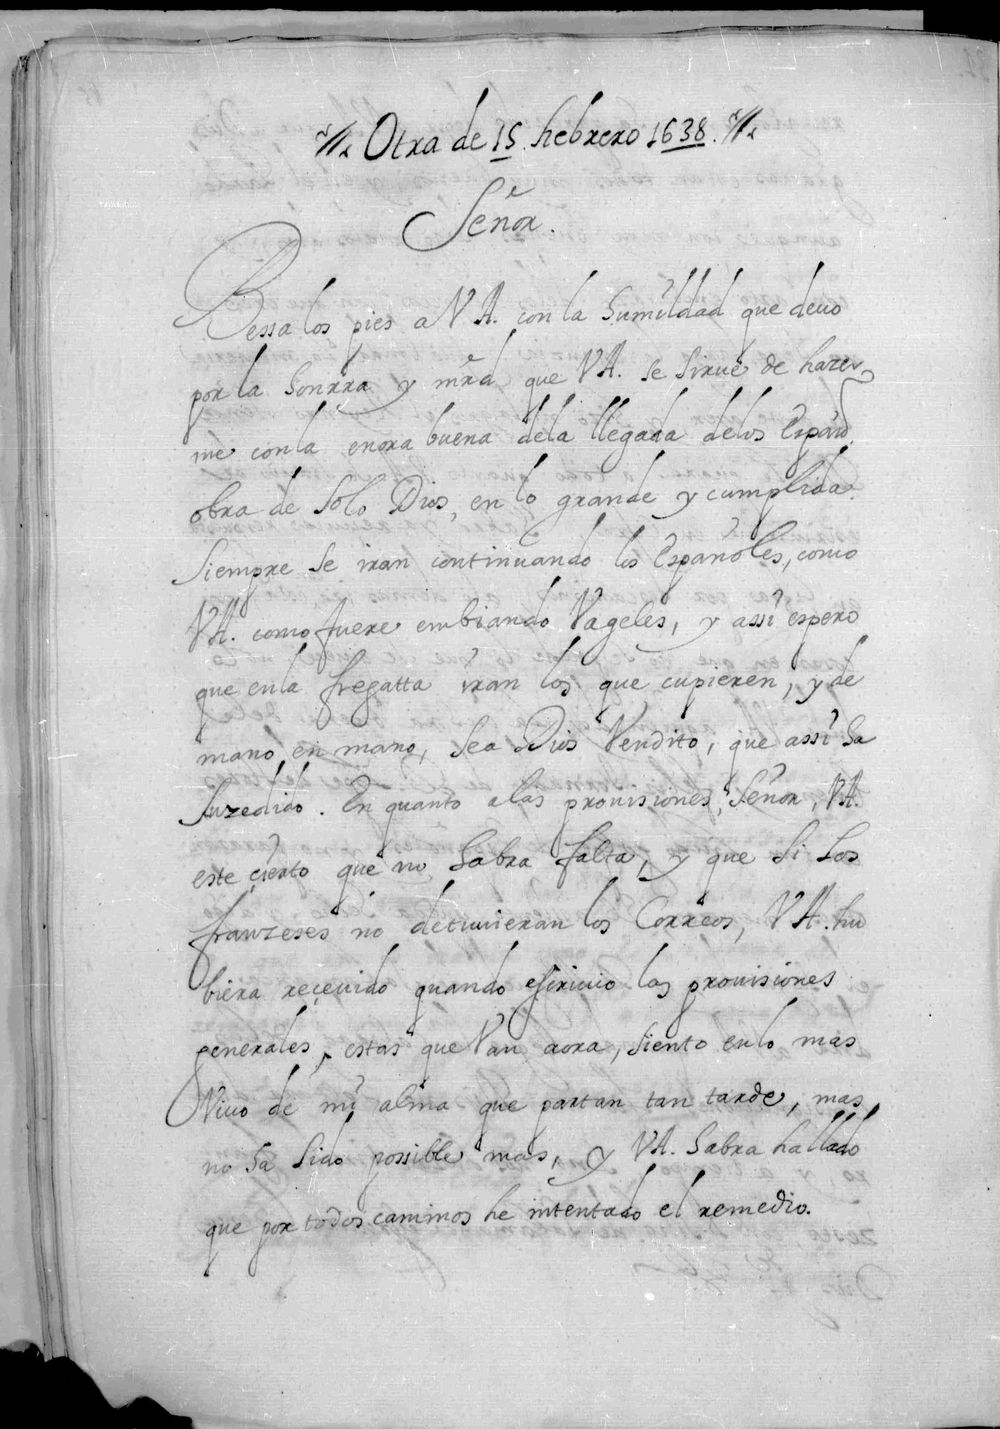 Otra de 15. hebrero 1638.
Señor.
Bessa los pies a V A. con la humildad que deuo
por la honrra y mrd que VA. se sirue de hazer
me con la enora buena dela llegada delos Españo.
obra de solo Dios, en lo grande y cumplida.
Siempre se iran continuando los Españoles, como
VA. como fuere embiando Vageles, y assi espero
que en la fregatta iran los que cupieren, y de
mano en mano, sea Dios Vendito, que assi ha
suzedido. En quanto a las prouisiones, Señor, VA.
este çierto que no habra falta, y que si los
franzeses no detuuieran los Correos, VA. hu
biera reçeuido quando escriuio las prouisiones
generales, estas que Van aora, siento en lo mas
Viuo de mi alma que partan tan tarde, mas
no ha sido possible mas, y VA. habra hallado
que por todos caminos he intentado el remedio.